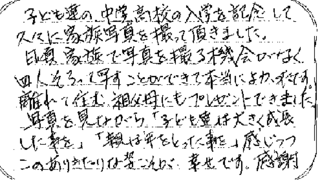 子ども達の中学、高校の入学を記念して
久々に家族写真を撮って頂きました。
日頃、家族で写真を撮る機会がなく、
四人そろって写すことができて本当によかったです。
離れて住む祖父母にもプレゼントできました。
写真を見ながら「子ども達は大きく成長
した事を」「親は年をとった事を」感じつつ
このありきたりな姿こそが、幸せです。感謝